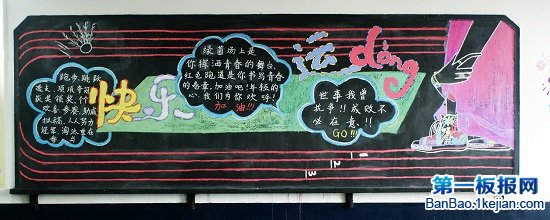 快乐
运dòng
跑步、跳跃
竞走、项项争冠
获奖领奖、个个
欢喜、参赛、助威
拟稿、人人努力
冠军、淘汰、重在
绿茵场上是
你挥洒青春的舞台、
红色跑道是你书写青春
的卷章、加油吧！年轻的
心、我们为你欢呼！
加油!!!
世事我曾
抗争!!成败不
必在意!!
GO!!!
1
2
3
第一板报网
BanBao.1kejian.com